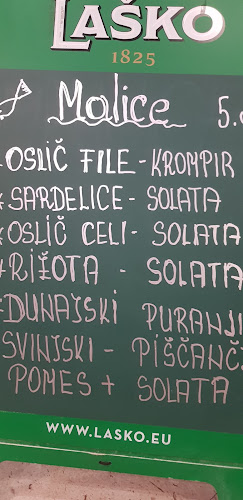 LAŠKO
1825
Malice 5.
OSLIČ FILE - KROMPIR
SARDELICE - SOLATA
OSLIČ CELI - SOLATA
RIŽOTA - SOLATA
DUNAJSKI PURANJI
SVINJSKI - PIŠČANČ
POMES + SOLATA
WWW.LASKO.EU